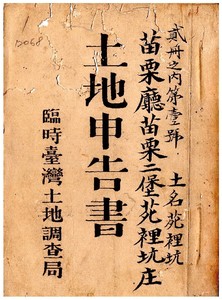 貳冊之內第壹號
土名苑裡坑
苗栗廳苗栗二堡苑裡坑庄
土地申告書
臨時臺灣土地調查局